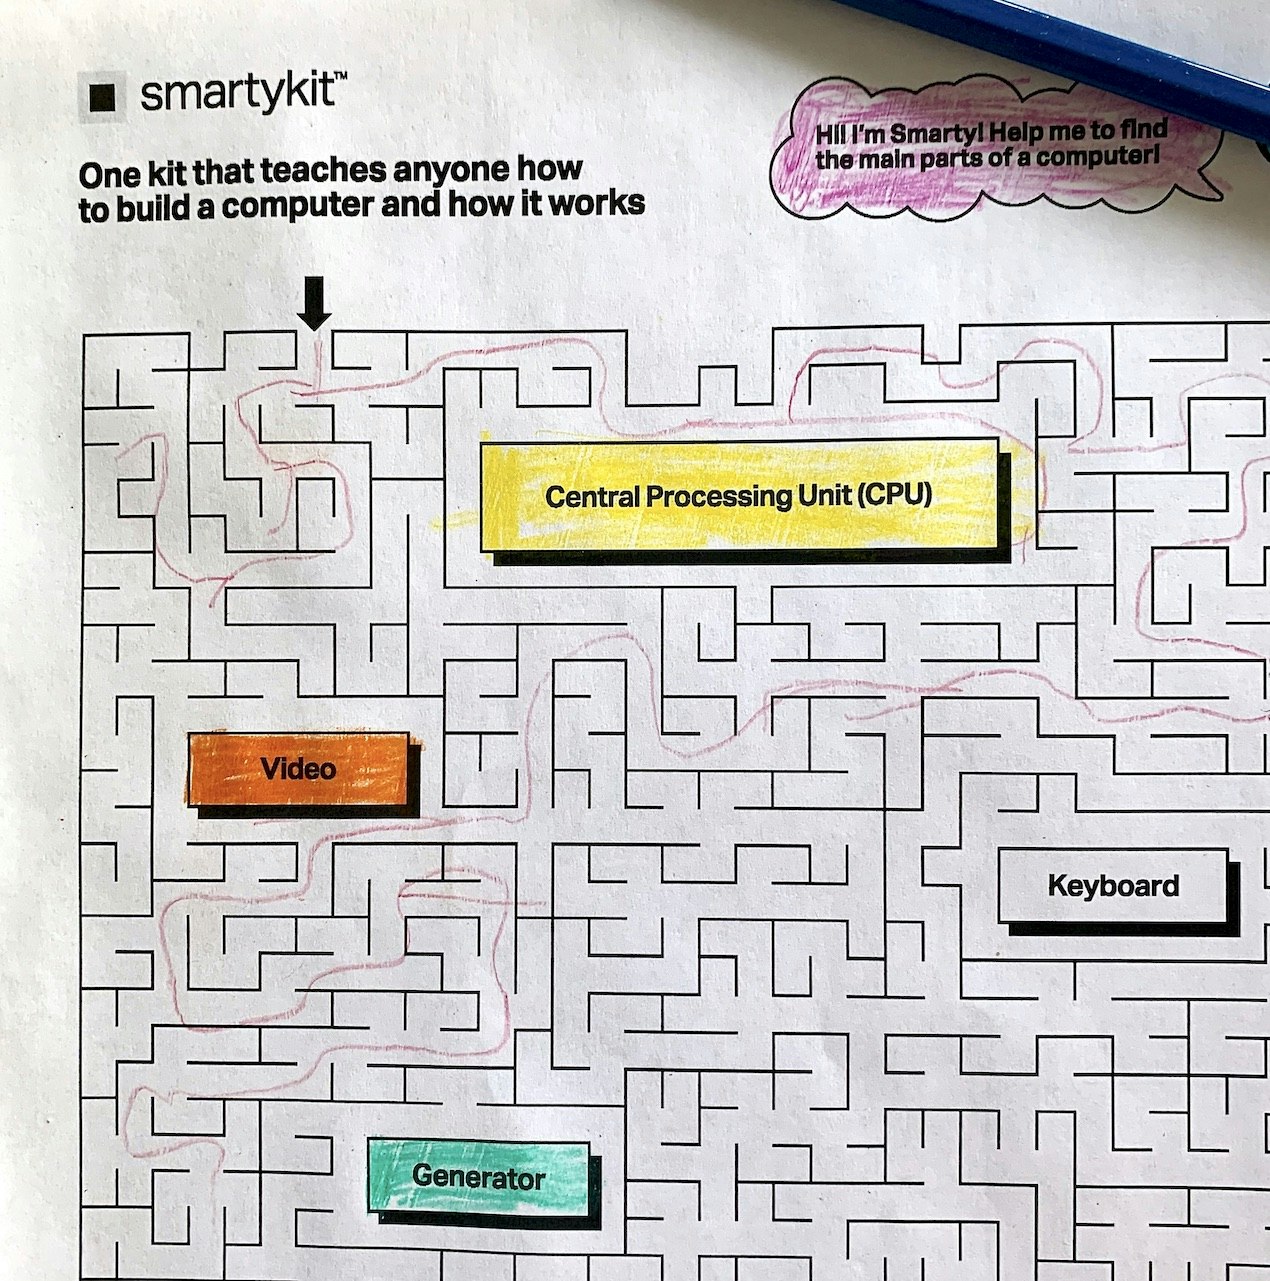 smartykit™
Hi! I'm Smarty! Help me to find
the main parts of a computer!
One kit that teaches anyone how
to build a computer and how it works
Central Processing Unit (CPU)
Video
Keyboard
Generator